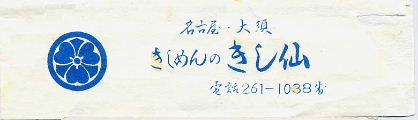 名古屋・大須
きしめんの きし仙
電話261-1038番